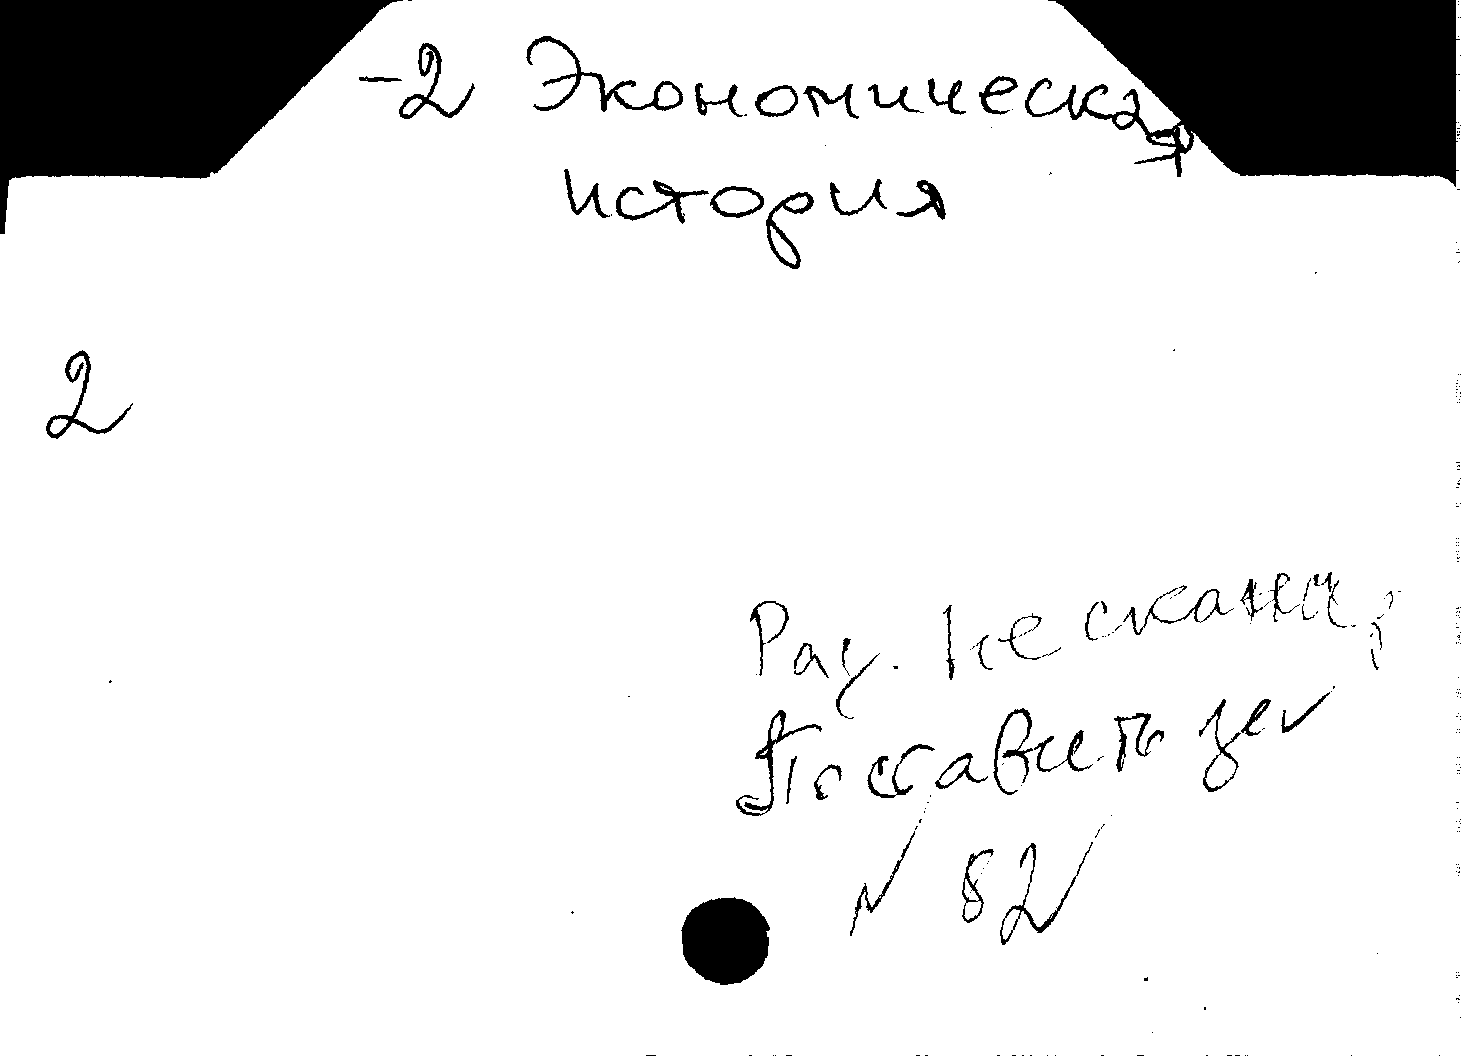 -2 Экономическая
история
2
Рац. не сканир
Поставить
№ 82